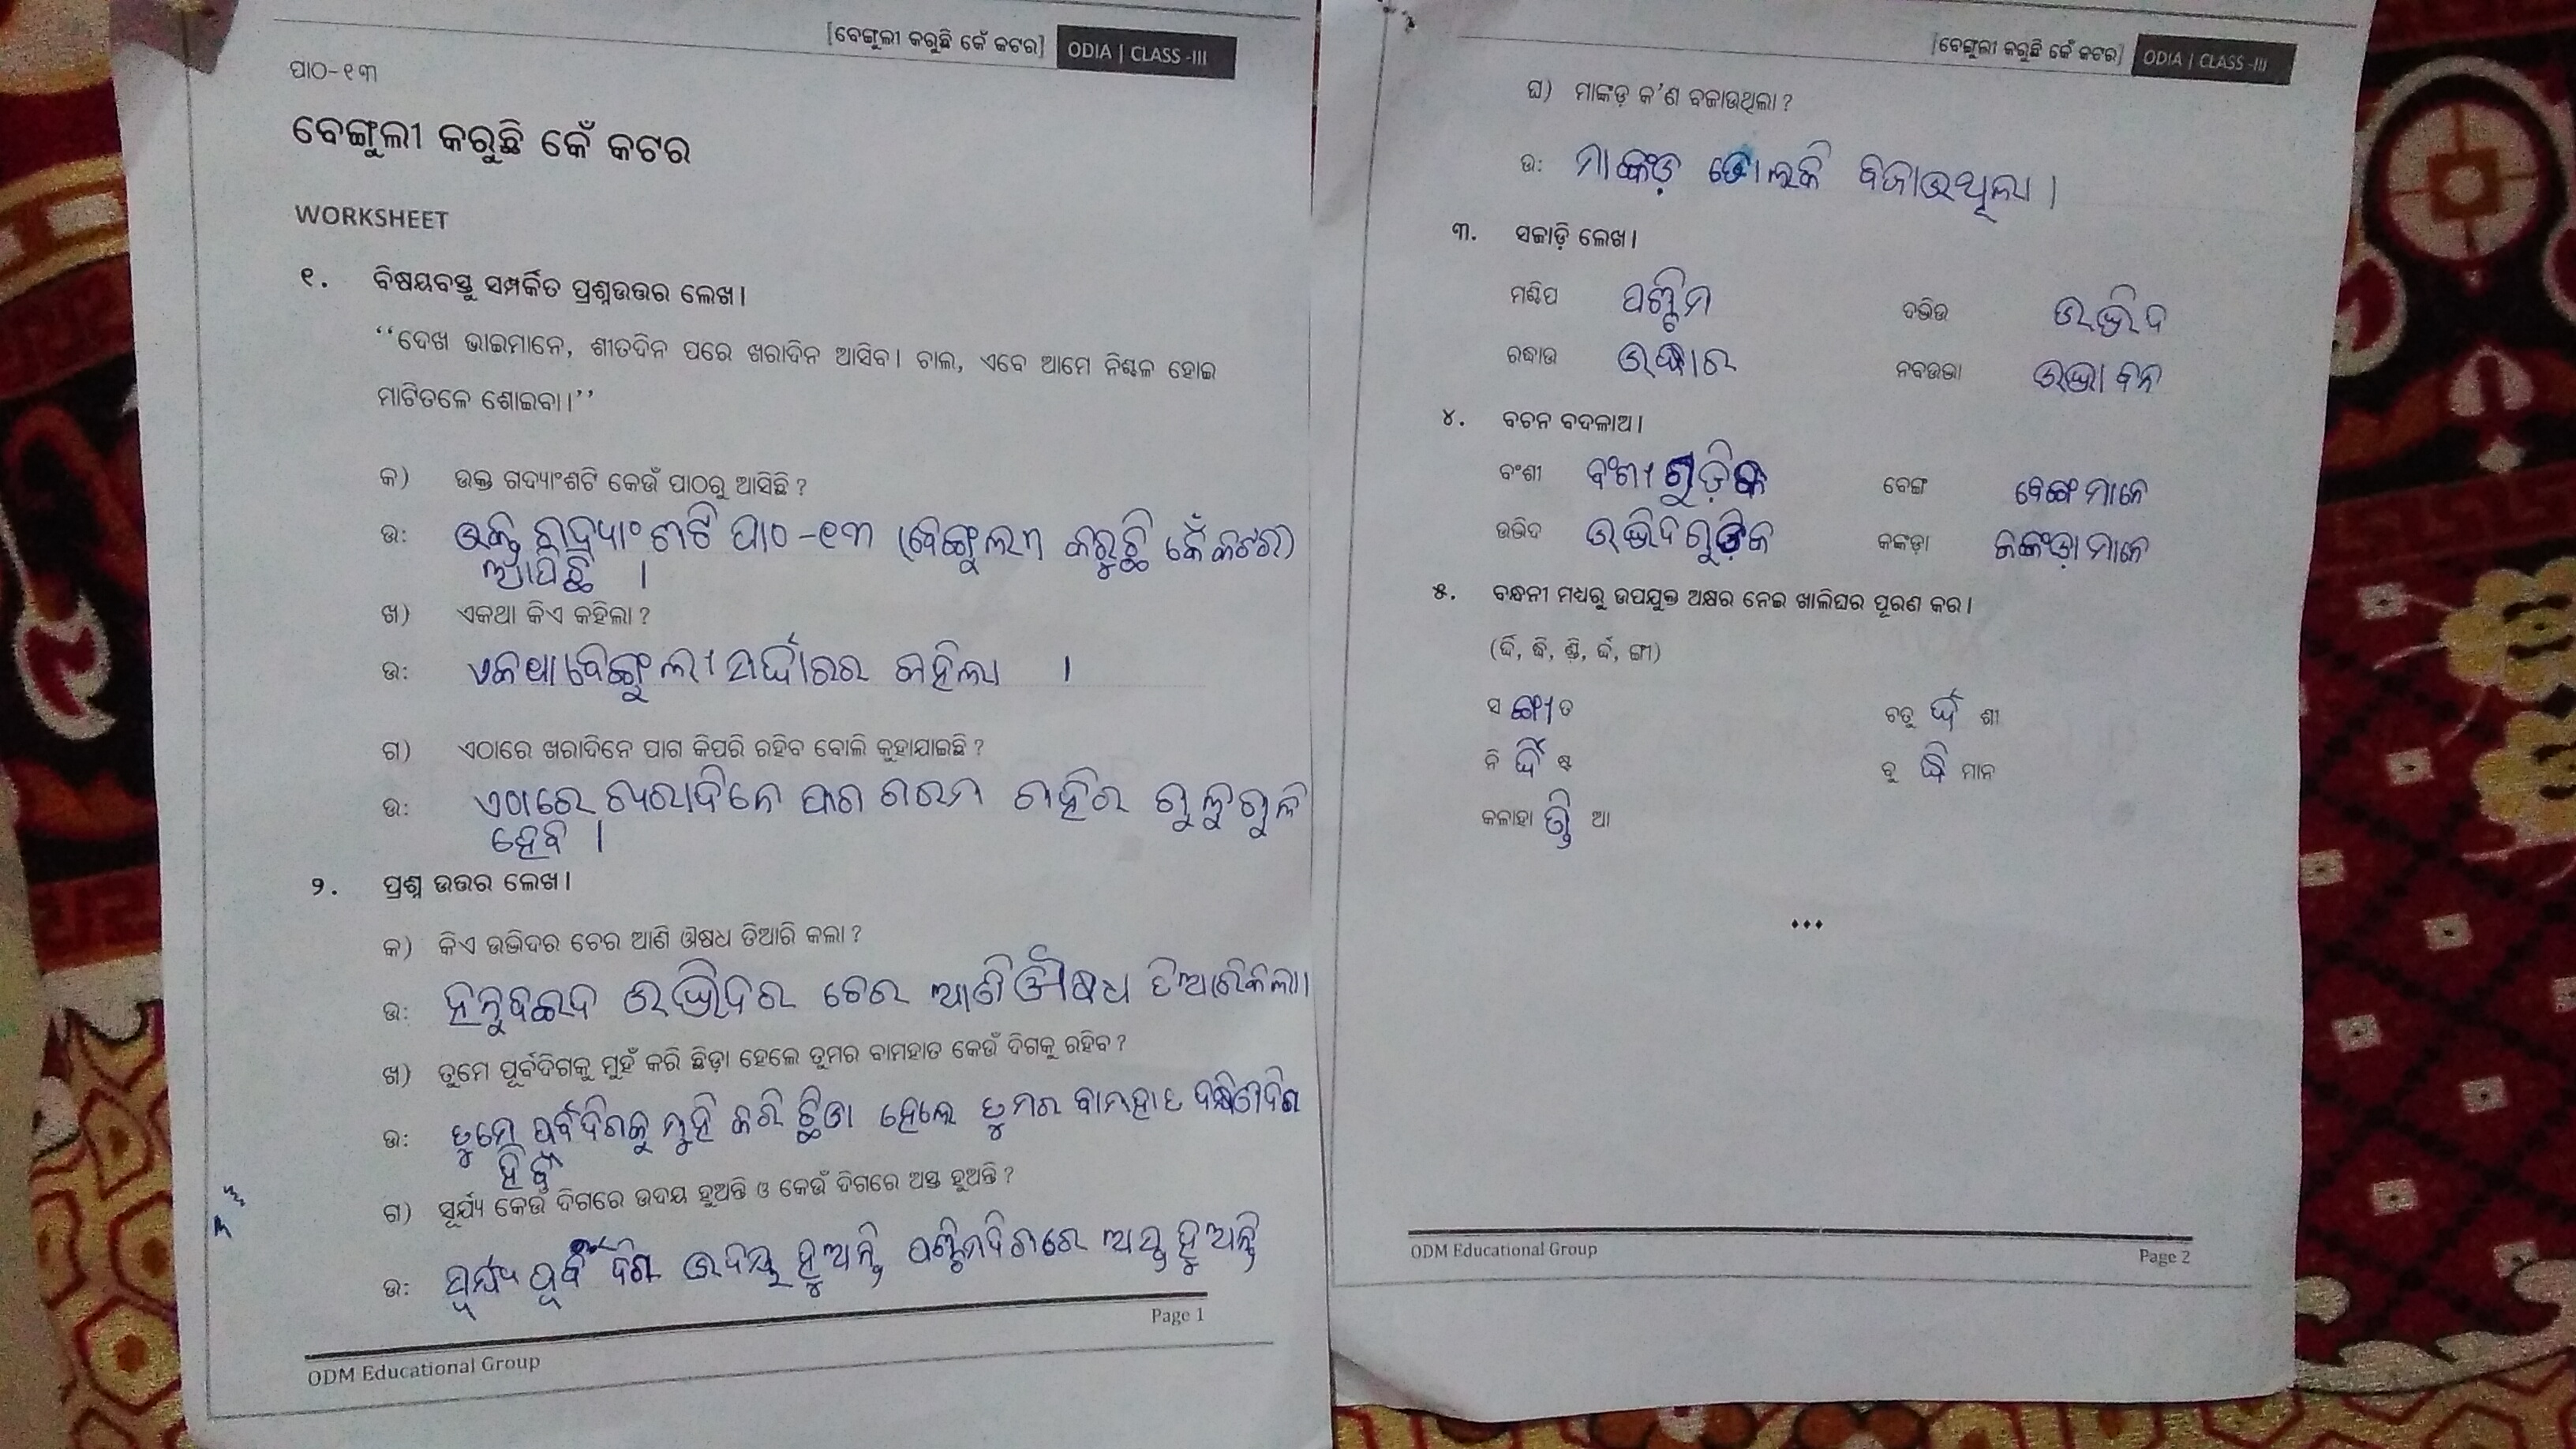 [ବେଙ୍ଗୁଲୀ କରୁଛି କେଁ କଟର] ODIA | CLASS -III
ପାଠ-୧୩
ବେଙ୍ଗୁଲୀ କରୁଛି କେଁ କଟର
WORKSHEET
୧. ବିଷୟବସ୍ତୁ ସମ୍ପର୍କିତ ପ୍ରଶ୍ନଉତ୍ତର ଲେଖ।
‘‘ଦେଖ ଭାଇମାନେ, ଶୀତଦିନ ପରେ ଖରାଦିନ ଆସିବ। ଚାଲ, ଏବେ ଆମେ ନିଶ୍ଚଳ ହୋଇ
ମାଟିତଳେ ଶୋଇବା।’’
କ) ଉକ୍ତ ଗଦ୍ୟାଂଶଟି କେଉଁ ପାଠରୁ ଆସିଛି ?
ଉ: ଉକ୍ତ ଗଦ୍ୟାଂଶଟି ପାଠ -୧୩ (ବେଙ୍ଗୁଲୀ କରୁଛି କେଁ କଟର)
ଆସିଛି ।
ଖ) ଏକଥା କିଏ କହିଲା ?
ଉ: ଏକଥା ବେଙ୍ଗୁଲୀ ସର୍ଦ୍ଦାରର କହିଲା ।
ଗ) ଏଠାରେ ଖରାଦିନେ ପାଗ କିପରି ରହିବ ବୋଲି କୁହାଯାଇଛି ?
ଉ: ଏଠାରେ ଖରାଦିନେ ପାଗ ଗରମ ଗୁଳୁଗୁଳି
ହେବ ।
୨. ପ୍ରଶ୍ନ ଉତ୍ତର ଲେଖ।
କ) କିଏ ଉଦ୍ଭିଦର ଚେର ଆଣି ଔଷଧ ତିଆରି କଲା ?
ଉ: ଉଦ୍ଭିଦର ଚେର ଆଣି ଔଷଧ ତିଆରିକଲା।
ଖ) ତୁମେ ପୂର୍ବଦିଗକୁ ମୁହଁ କରି ଛିଡ଼ା ହେଲେ ତୁମର ବାମହାତ କେଉଁ ଦିଗକୁ ରହିବ ?
ଉ: ତୁମେ ପୂର୍ବଦିଗକୁ ମୁହି କରି ଛିଡା ହେଲେ ତୁମର ବାମହାତ ଦକ୍ଷିଣଦିଗ
ଗ) ସୂର୍ଯ୍ୟ କେଉଁ ଦିଗରେ ଉଦୟ ହୁଅନ୍ତି ଓ କେଉଁ ଦିଗରେ ଅସ୍ତ ହୁଅନ୍ତି ?
ଉ: ସୂର୍ଯ୍ୟ ପୂର୍ବ ଦିଗ ଉଦୟ ହୁଅନ୍ତି ପଶ୍ଚିମଦିଗରେ ଅସ୍ତ ହୁଅନ୍ତି
Page 1
ODM Educational Group
[ବେଙ୍ଗୁଲୀ କରୁଛି କେଁ କଟର] ODIA | CLASS -III
ଘ) ମାଙ୍କଡ଼ କ’ଣ ବଜାଉଥିଲା ?
ଉ: ମାଙ୍କଡ଼ ଢୋଲକି ବଜାଉଥିଲା ।
୩. ସଜାଡ଼ି ଲେଖ।
ମଶ୍ଚିପ ପଶ୍ଚିମ ଦଭିଉ ଉଦ୍ଭିଦ
ରଦ୍ଧାଉ ଉଦ୍ଧାର ନବଉଦ୍ଭା ଉଦ୍ଭାବନ
୪. ବଚନ ବଦଳାଅ।
ବଂଶୀ ବଂଶୀଗୁଡ଼ିକ ବେଙ୍ଗ ବେଙ୍ଗମାନେ
ଉଦ୍ଭିଦ ଉଦ୍ଭିଦଗୁଡ଼ିକ କଙ୍କଡ଼ା କଙ୍କଡ଼ାମାନେ
୫. ବନ୍ଧନୀ ମଧ୍ୟରୁ ଉପଯୁକ୍ତ ଅକ୍ଷର ନେଇ ଖାଲିଘର ପୂରଣ କର।
(ର୍ଦ୍ଦି, ଦ୍ଧି, ଣ୍ଡି, ର୍ଦ୍ଦ, ଙ୍ଗୀ)
ସ ଙ୍ଗୀ ତ ଚତୁ ର୍ଦ୍ଦ ଶୀ
ନି ର୍ଦ୍ଦି ଷ୍ଟ ବୁ ଦ୍ଧି ମାନ
କଳାହା ଣ୍ଡି ଆ
ODM Educational Group
Page 2